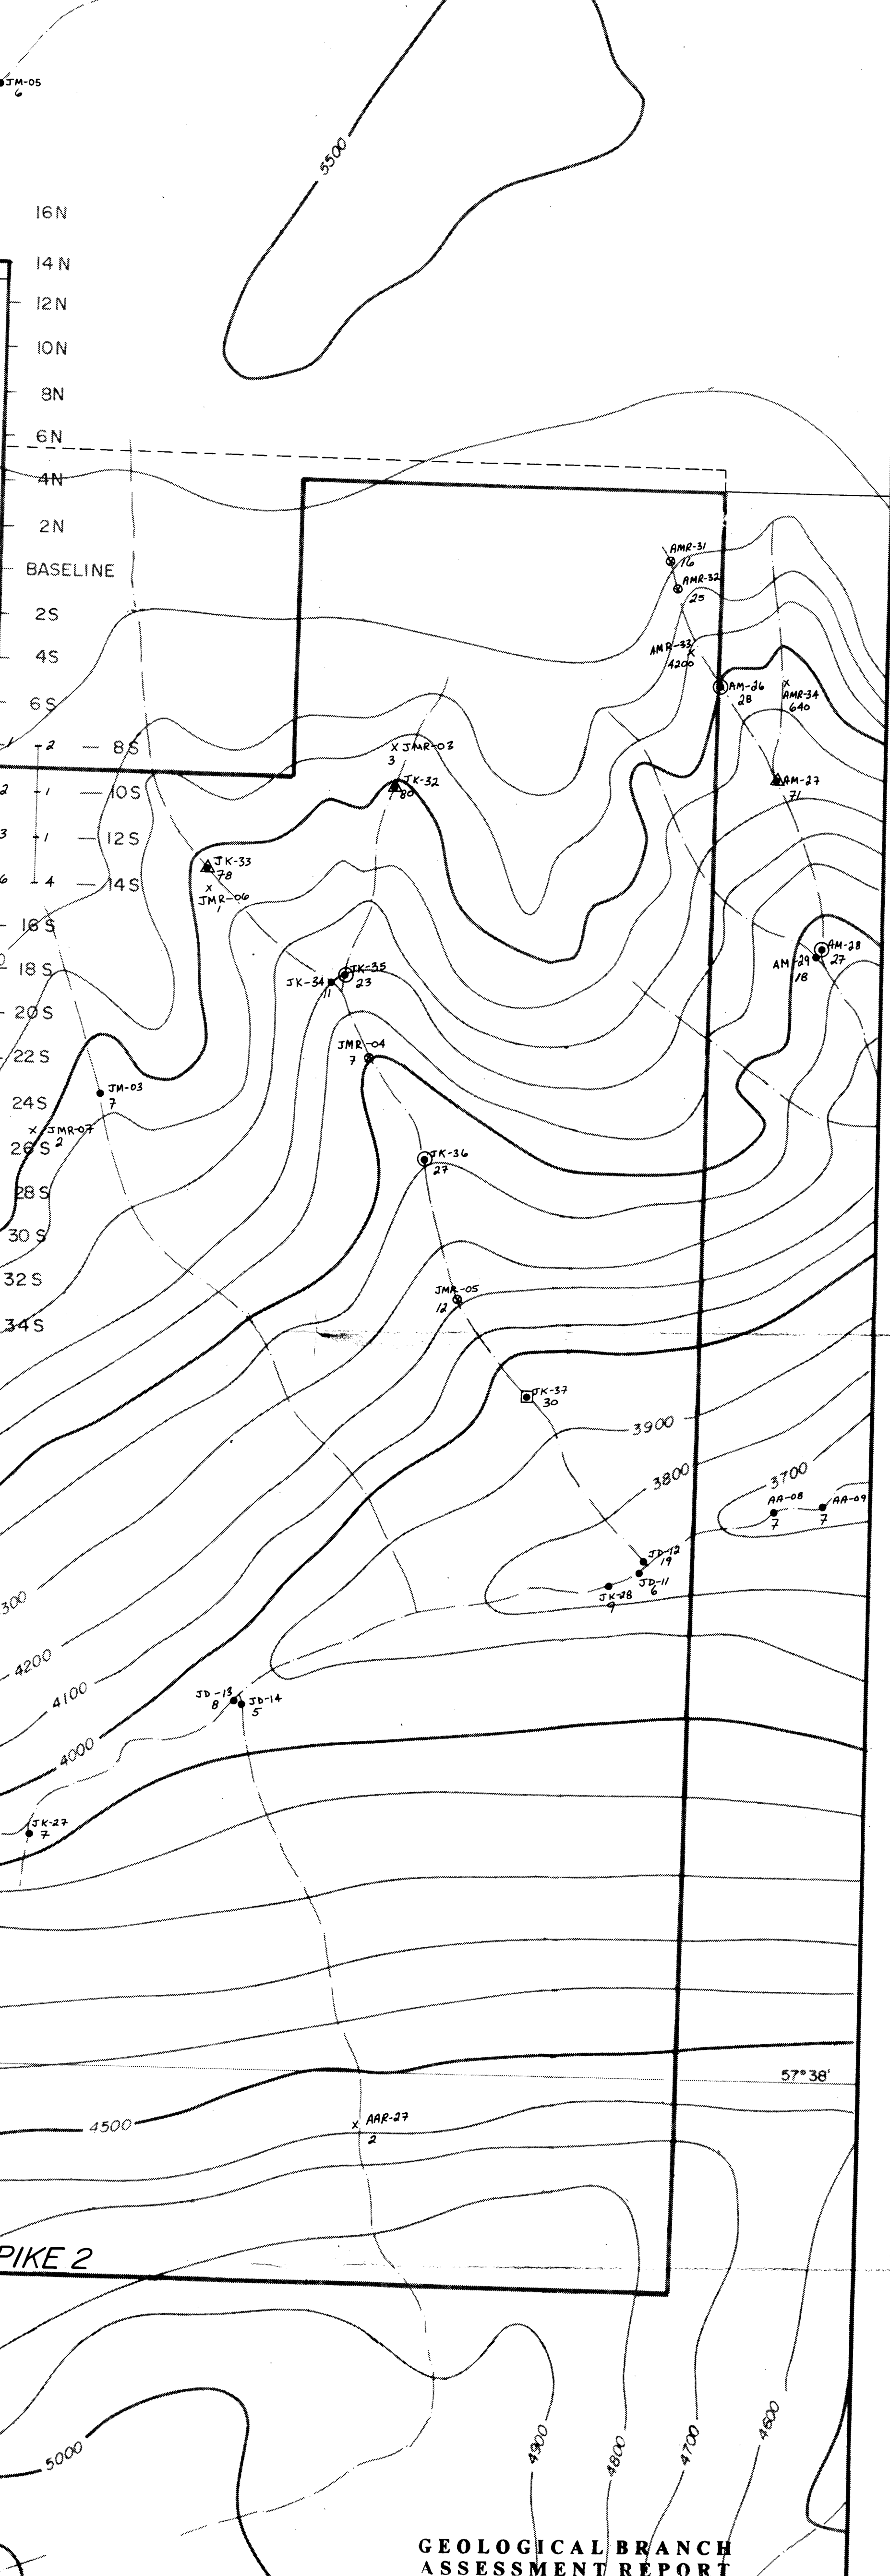 JM-05
6
5500
16N
14N
12N
10N
8N
6N
4N
2N
BASELINE
2S
4S
6S
8S
10S
12S
14S
16S
18S
20S
22S
24S
26S
28S
30S
32S
34S
2
1
1
4
AMR-31
16
AMR-32
25
AMR-33
4200
AM-26
28
AMR-34
640
JMR-03
3
JK-32
80
AM-27
71
JK-33
78
JMR-06
1
AM-28
27
AM-29
18
JK-35
23
JK-34
11
JMR-04
7
JM-03
7
JMR-07
2
JK-36
27
JMR-05
12
JK-37
30
3900
3800
3700
AA-08
7
AA-09
7
JD-12
19
JD-11
6
JK-28
9
300
4200
4100
4000
JD-13
8
JD-14
5
JK-27
7
57°38'
4500
AAR-27
2
PIKE 2
5000
4900
4800
4700
4600
GEOLOGICAL BRANCH
ASSESSMENT REPORT